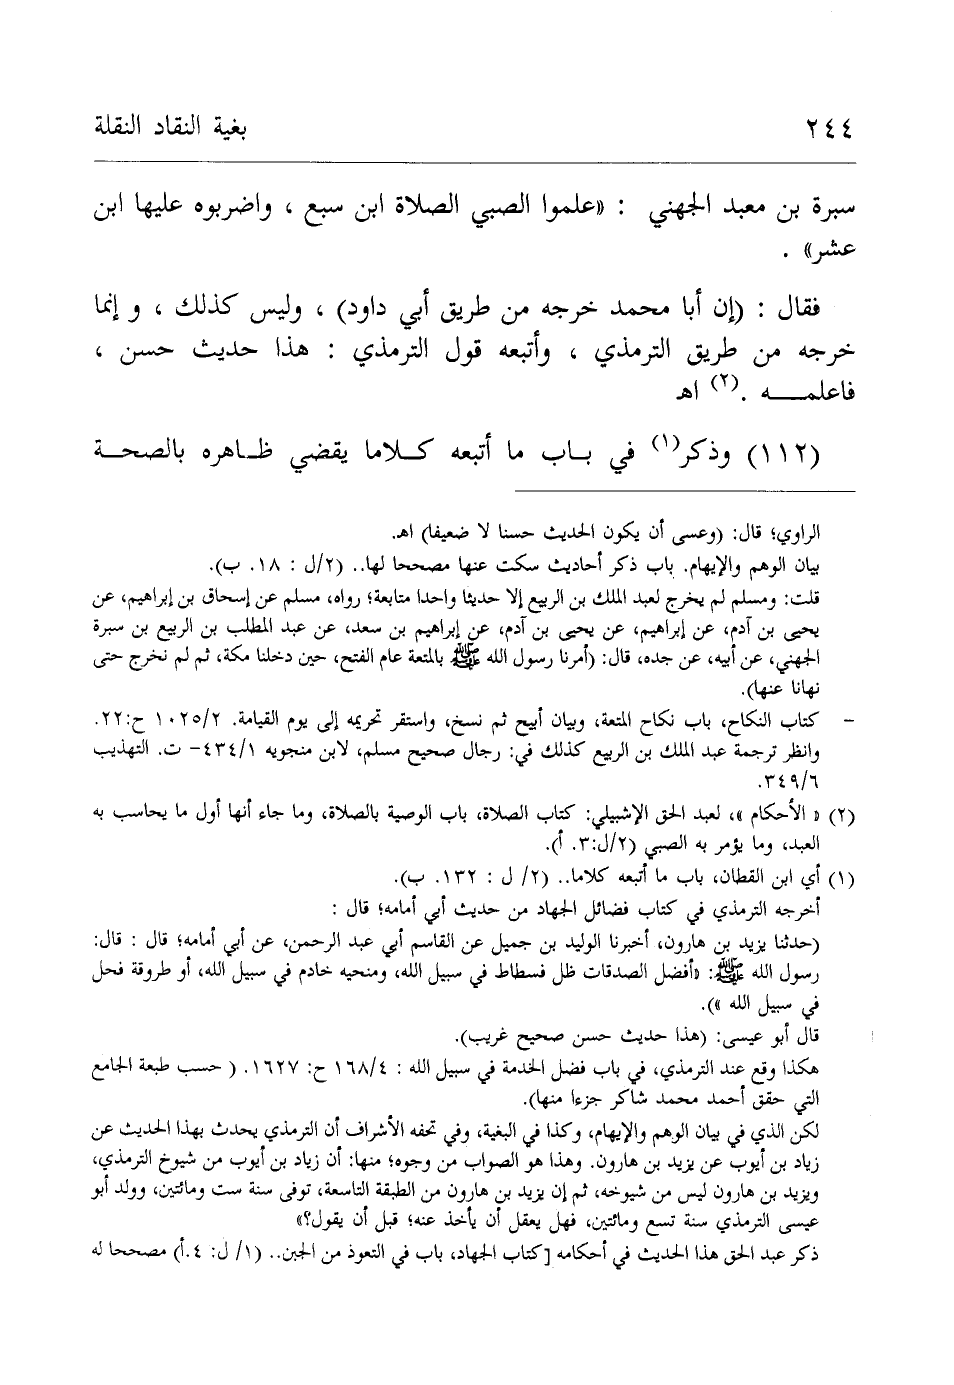 ٢٤٤ بغية النقاد النقلة
سبرة بن معبد الجهني : «علموا الصبي الصلاة ابن سبع ، واضربوه عليها ابن
عشر» .
فقال : (إن أبا محمد خرجه من طريق أبي داود) ، وليس كذلك ، و إنما
خرجه من طريق الترمذي ، وأتبعه قول الترمذي : هذا حديث حسن ،
فاعلمـــــه .(٢) اهـ
(١١٢) وذكر(١) في بـاب ما أتبعه كـلاما يقضي ظـاهره بالصحـة
الراوي؛ قال: (وعسى أن يكون الحديث حسنا لا ضعيفا) اهـ.
بيان الوهم والإيهام. باب ذكر أحاديث سكت عنها مصححا لها.. (٢/ل : ١٨. ب).
قلت: ومسلم لم يخرج لعبد الملك بن الربيع إلا حديثا واحدا متابعة؛ رواه، مسلم عن إسحاق بن إبراهيم، عن
يحيى بن آدم، عن إبراهيم، عن يحيى بن آدم، عن إبراهيم بن سعد، عن عبد المطلب بن الربيع بن سبرة
الجهني، عن أبيه، عن جده، قال: (أمرنا رسول الله ﷺ بالمتعة عام الفتح، حين دخلنا مكة، ثم لم نخرج حتى
نهانا عنها).
- كتاب النكاح، باب نكاح المتعة، وبيان أبيح ثم نسخ، واستقر تحريمه إلى يوم القيامة. ١٠٢٥/٢ ح:٢٢.
وانظر ترجمة عبد الملك بن الربيع كذلك في: رجال صحيح مسلم، لابن منجويه ٤٣٤/١- ت. التهذيب
٣٤٩/٦.
(٢) « الأحكام »، لعبد الحق الإشبيلي: كتاب الصلاة، باب الوصية بالصلاة، وما جاء أنها أول ما يحاسب به
العبد، وما يؤمر به الصبي (٢/ل:٣. أ).
(١) أي ابن القطان، باب ما أتبعه كلاما.. (٢/ ل : ١٣٢. ب).
أخرجه الترمذي في كتاب فضائل الجهاد من حديث أبي أمامه؛ قال :
(حدثنا يزيد بن هارون، أخبرنا الوليد بن جميل عن القاسم أبي عبد الرحمن، عن أبي أمامه؛ قال : قال:
رسول الله ﷺ: «أفضل الصدقات ظل فسطاط في سبيل الله، ومنحيه خادم في سبيل الله، أو طروقة فحل
في سبيل الله »).
قال أبو عيسى: (هذا حديث حسن صحيح غريب).
هكذا وقع عند الترمذي، في باب فضل الخدمة في سبيل الله : ١٦٨/٤ ح: ١٦٢٧. ( حسب طبعة الجامع
التي حقق أحمد محمد شاكر جزءا منها).
لكن الذي في بيان الوهم والإيهام، وكذا في البغية، وفي تحفه الأشراف أن الترمذي يحدث بهذا الحديث عن
زياد بن أيوب عن يزيد بن هارون. وهذا هو الصواب من وجوه؛ منها: أن زياد بن أيوب من شيوخ الترمذي،
ويزيد بن هارون ليس من شيوخه، ثم إن يزيد بن هارون من الطبقة التاسعة، توفى سنة ست ومائتين، وولد أبو
عيسى الترمذي سنة تسع ومائتين، فهل يعقل أن يأخذ عنه؛ قبل أن يقول؟»
ذكر عبد الحق هذا الحديث في أحكامه [كتاب الجهاد، باب في التعوذ من الجبن.. (١/ ل: ٤.أ) مصححا له